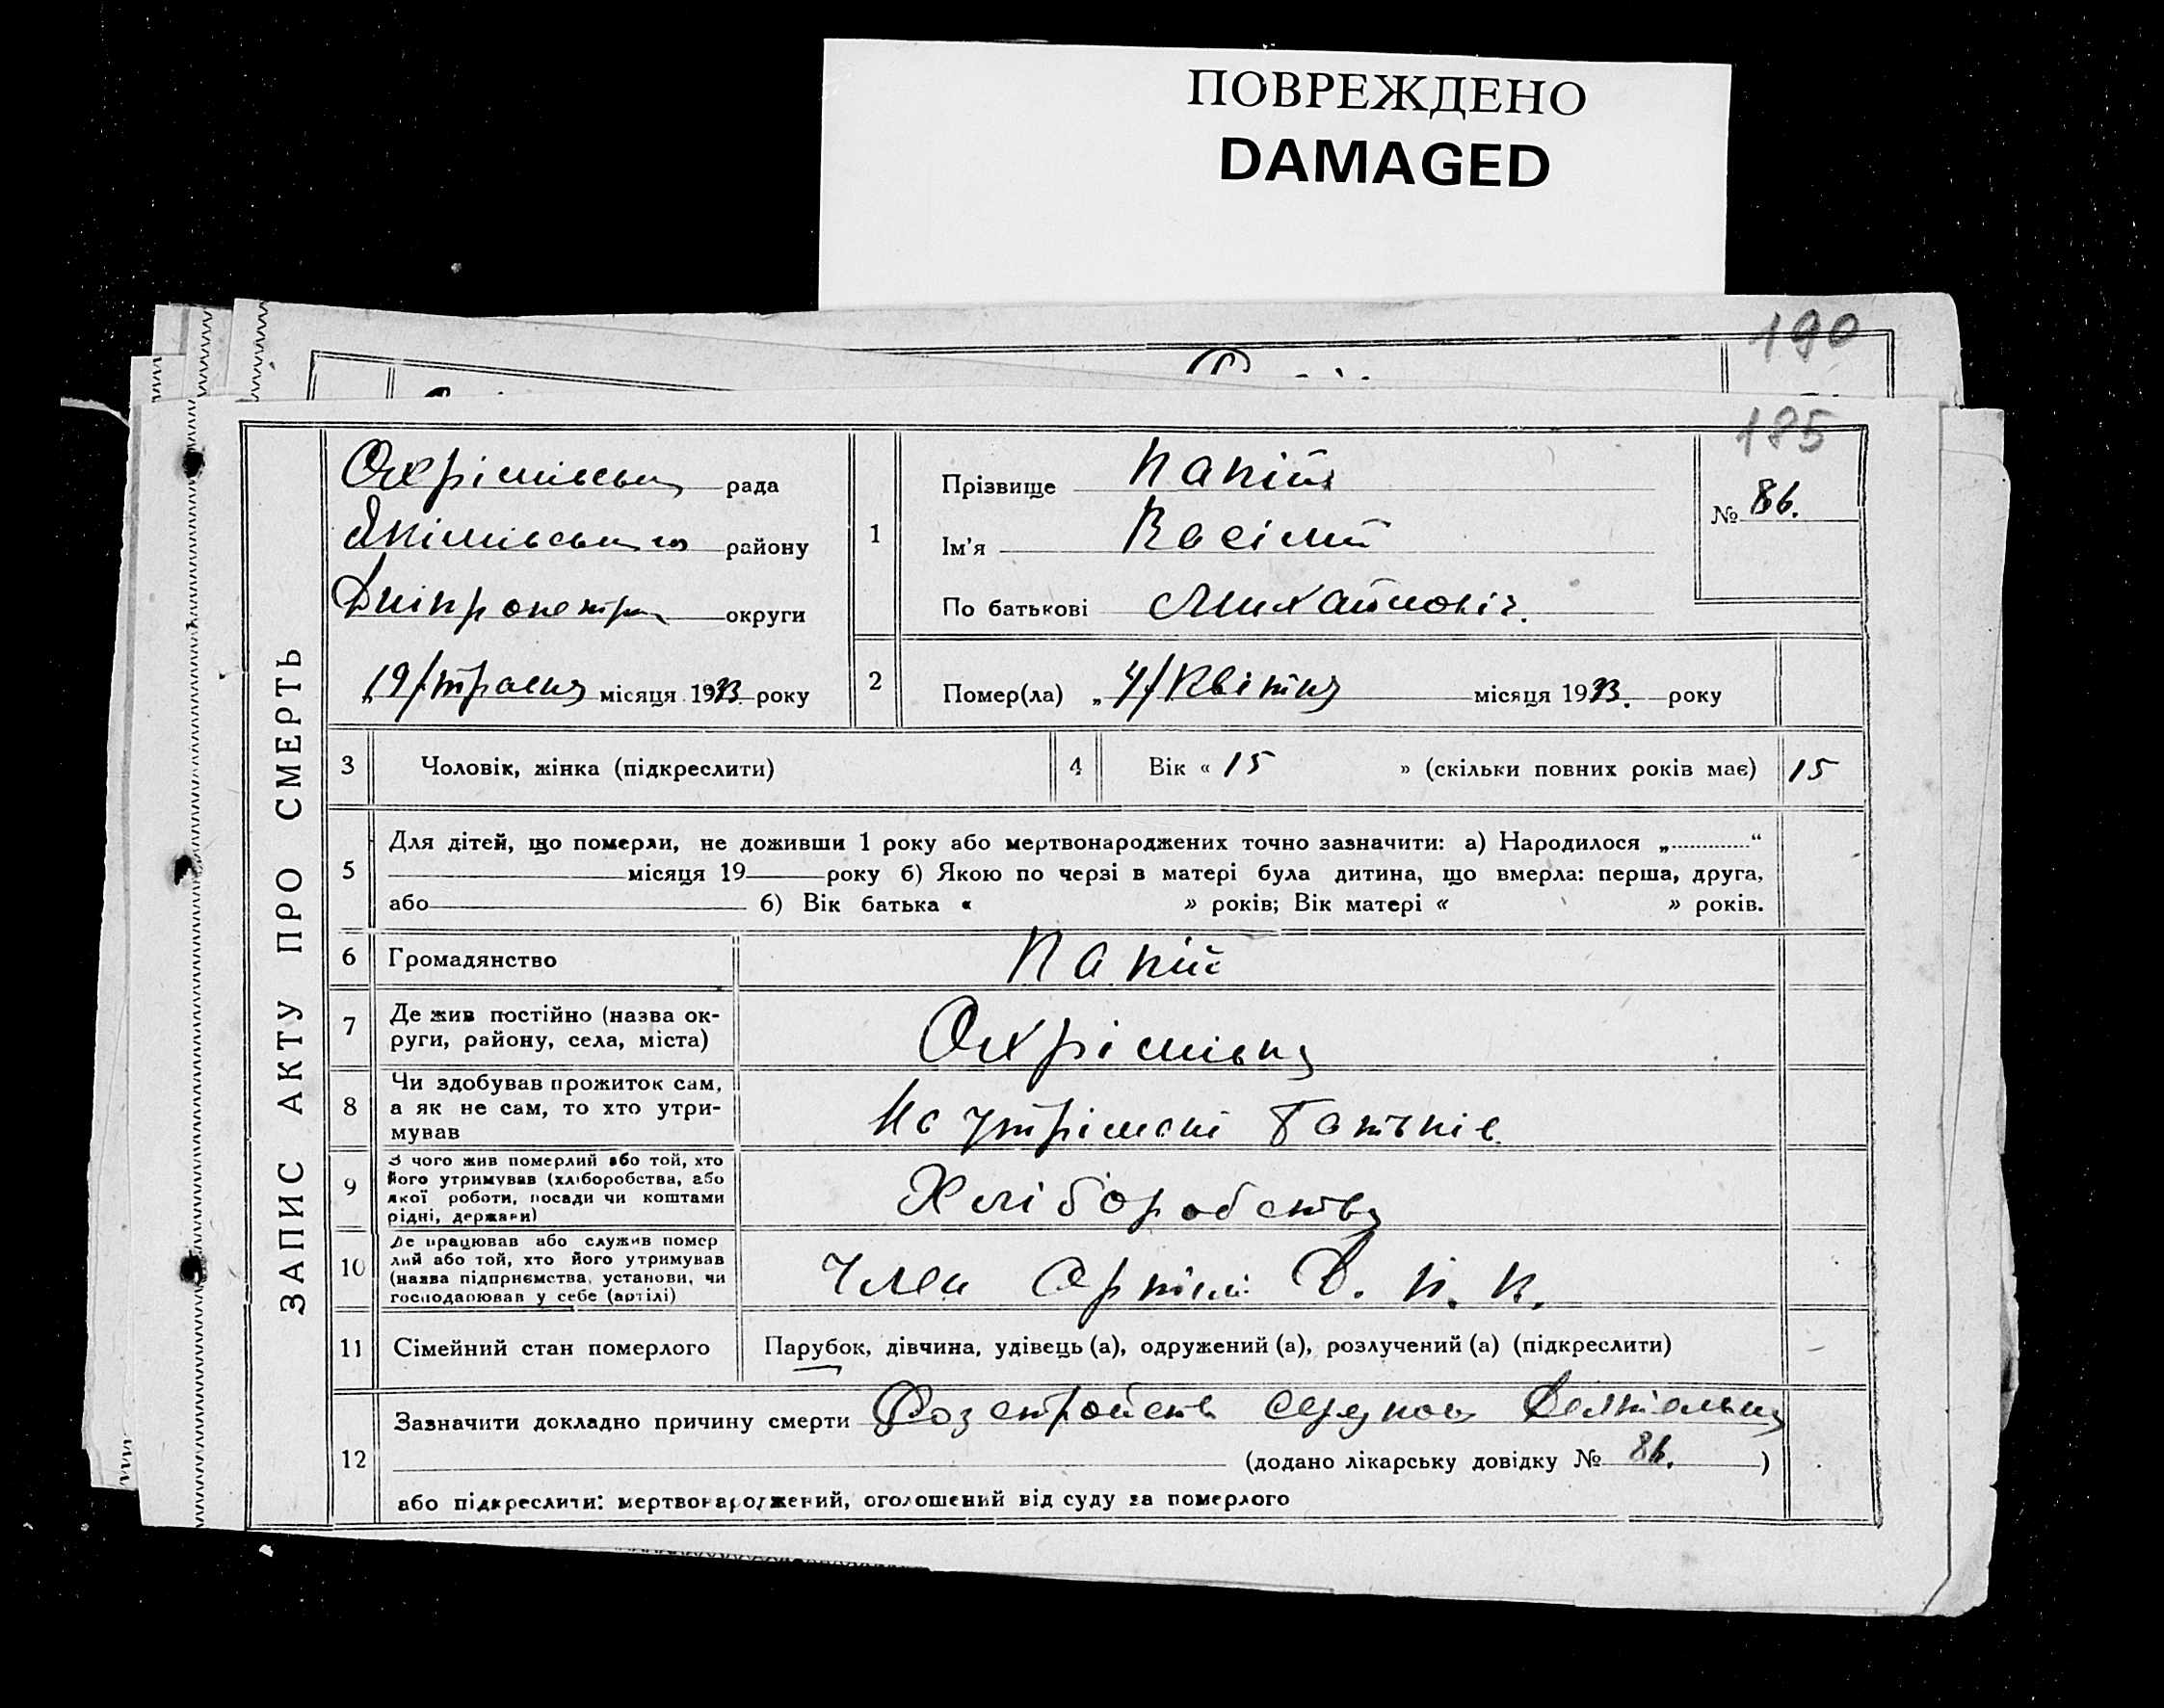 ПОВРЕЖДЕНО
DAMAGED
190
185
ЗАПИС АКТУ ПРО СМЕРТЬ
Охрімівська рада
Якімівського району
Дніпропетр округи
„19/травня місяця 1933. року
1
Прізвище Папій
Ім'я Васілій
По батькові Михайловіч.
№ 86.
2
Помер(ла) „4/Квітня місяця 1933. року
3 Чоловік, жінка (підкреслити)
4 Вік « 15 » (скільки повних років має) 15
5 Для дітей, що померли, не доживши 1 року або мертвонароджених точно зазначити: а) Народилося „............“
місяця 19 року б) Якою по черзі в матері була дитина, що вмерла: перша, друга,
або б) Вік батька « » років; Вік матері « » років.
6 Громадянство Папій
7 Де жив постійно (назва ок-
руги, району, села, міста)
Охрімівка
8 Чи здобував прожиток сам,
а як не сам, то хто утри-
мував
На утрімані батьків
9 З чого жив померлий або той, хто
його утримував (хліборобства, або
якої роботи, посади чи коштами
рідні, держави)
Хліборобство
10 Де працював або служив помер
лий або той, хто його утримував
(назва підприємства, установи, чи
господарював у себе (артілі)
Член Артілі
11 Сімейний стан померлого Парубок, дівчина, удівець (а), одружений (а), розлучений (а) (підкреслити)
12 Зазначити докладно причину смерти Розстройств
(додано лікарську довідку № 86. )
або підкреслити: мертвонароджений, оголошений від суду за померлого